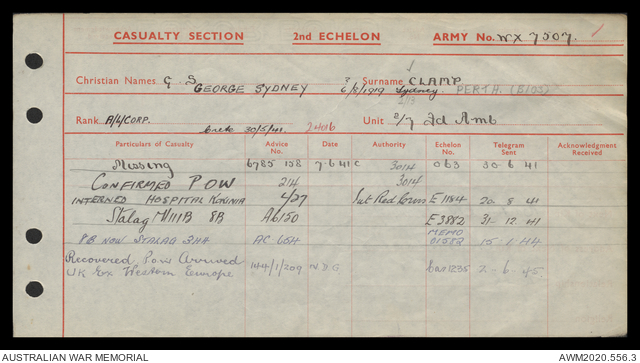 CASUALTY SECTION 2nd ECHELON ARMY No. WX 7507.
Christian Names G. S. GEORGE SYDNEY 6/8/1919 Surname CLAMP
Sydney. PERTH. (BIOS)
Rank A/L/CORP. Crete 30/5/41. 24016 Unit 2/7 Fd Amb
Particulars of Casualty Advice No. Date Authority Echelon No. Telegram Sent Acknowledgment Received
Missing 6785 158 7-6 41 C 3014 063 30-6 41
CONFIRMED POW 214 3014
INTERNED HOSPITAL KOKINIA 4/27 Int Red Cross E1184 20 8 41
Stalag 8B A6150 E3882 31-12 41
8B NOW STALAG AC 654 MEMO 01582 15.1.44
Recovered Pow Arrived
UK Ex Western Europe 144/1/209 2-6-45.
AUSTRALIAN WAR MEMORIAL AWM2020.556.3